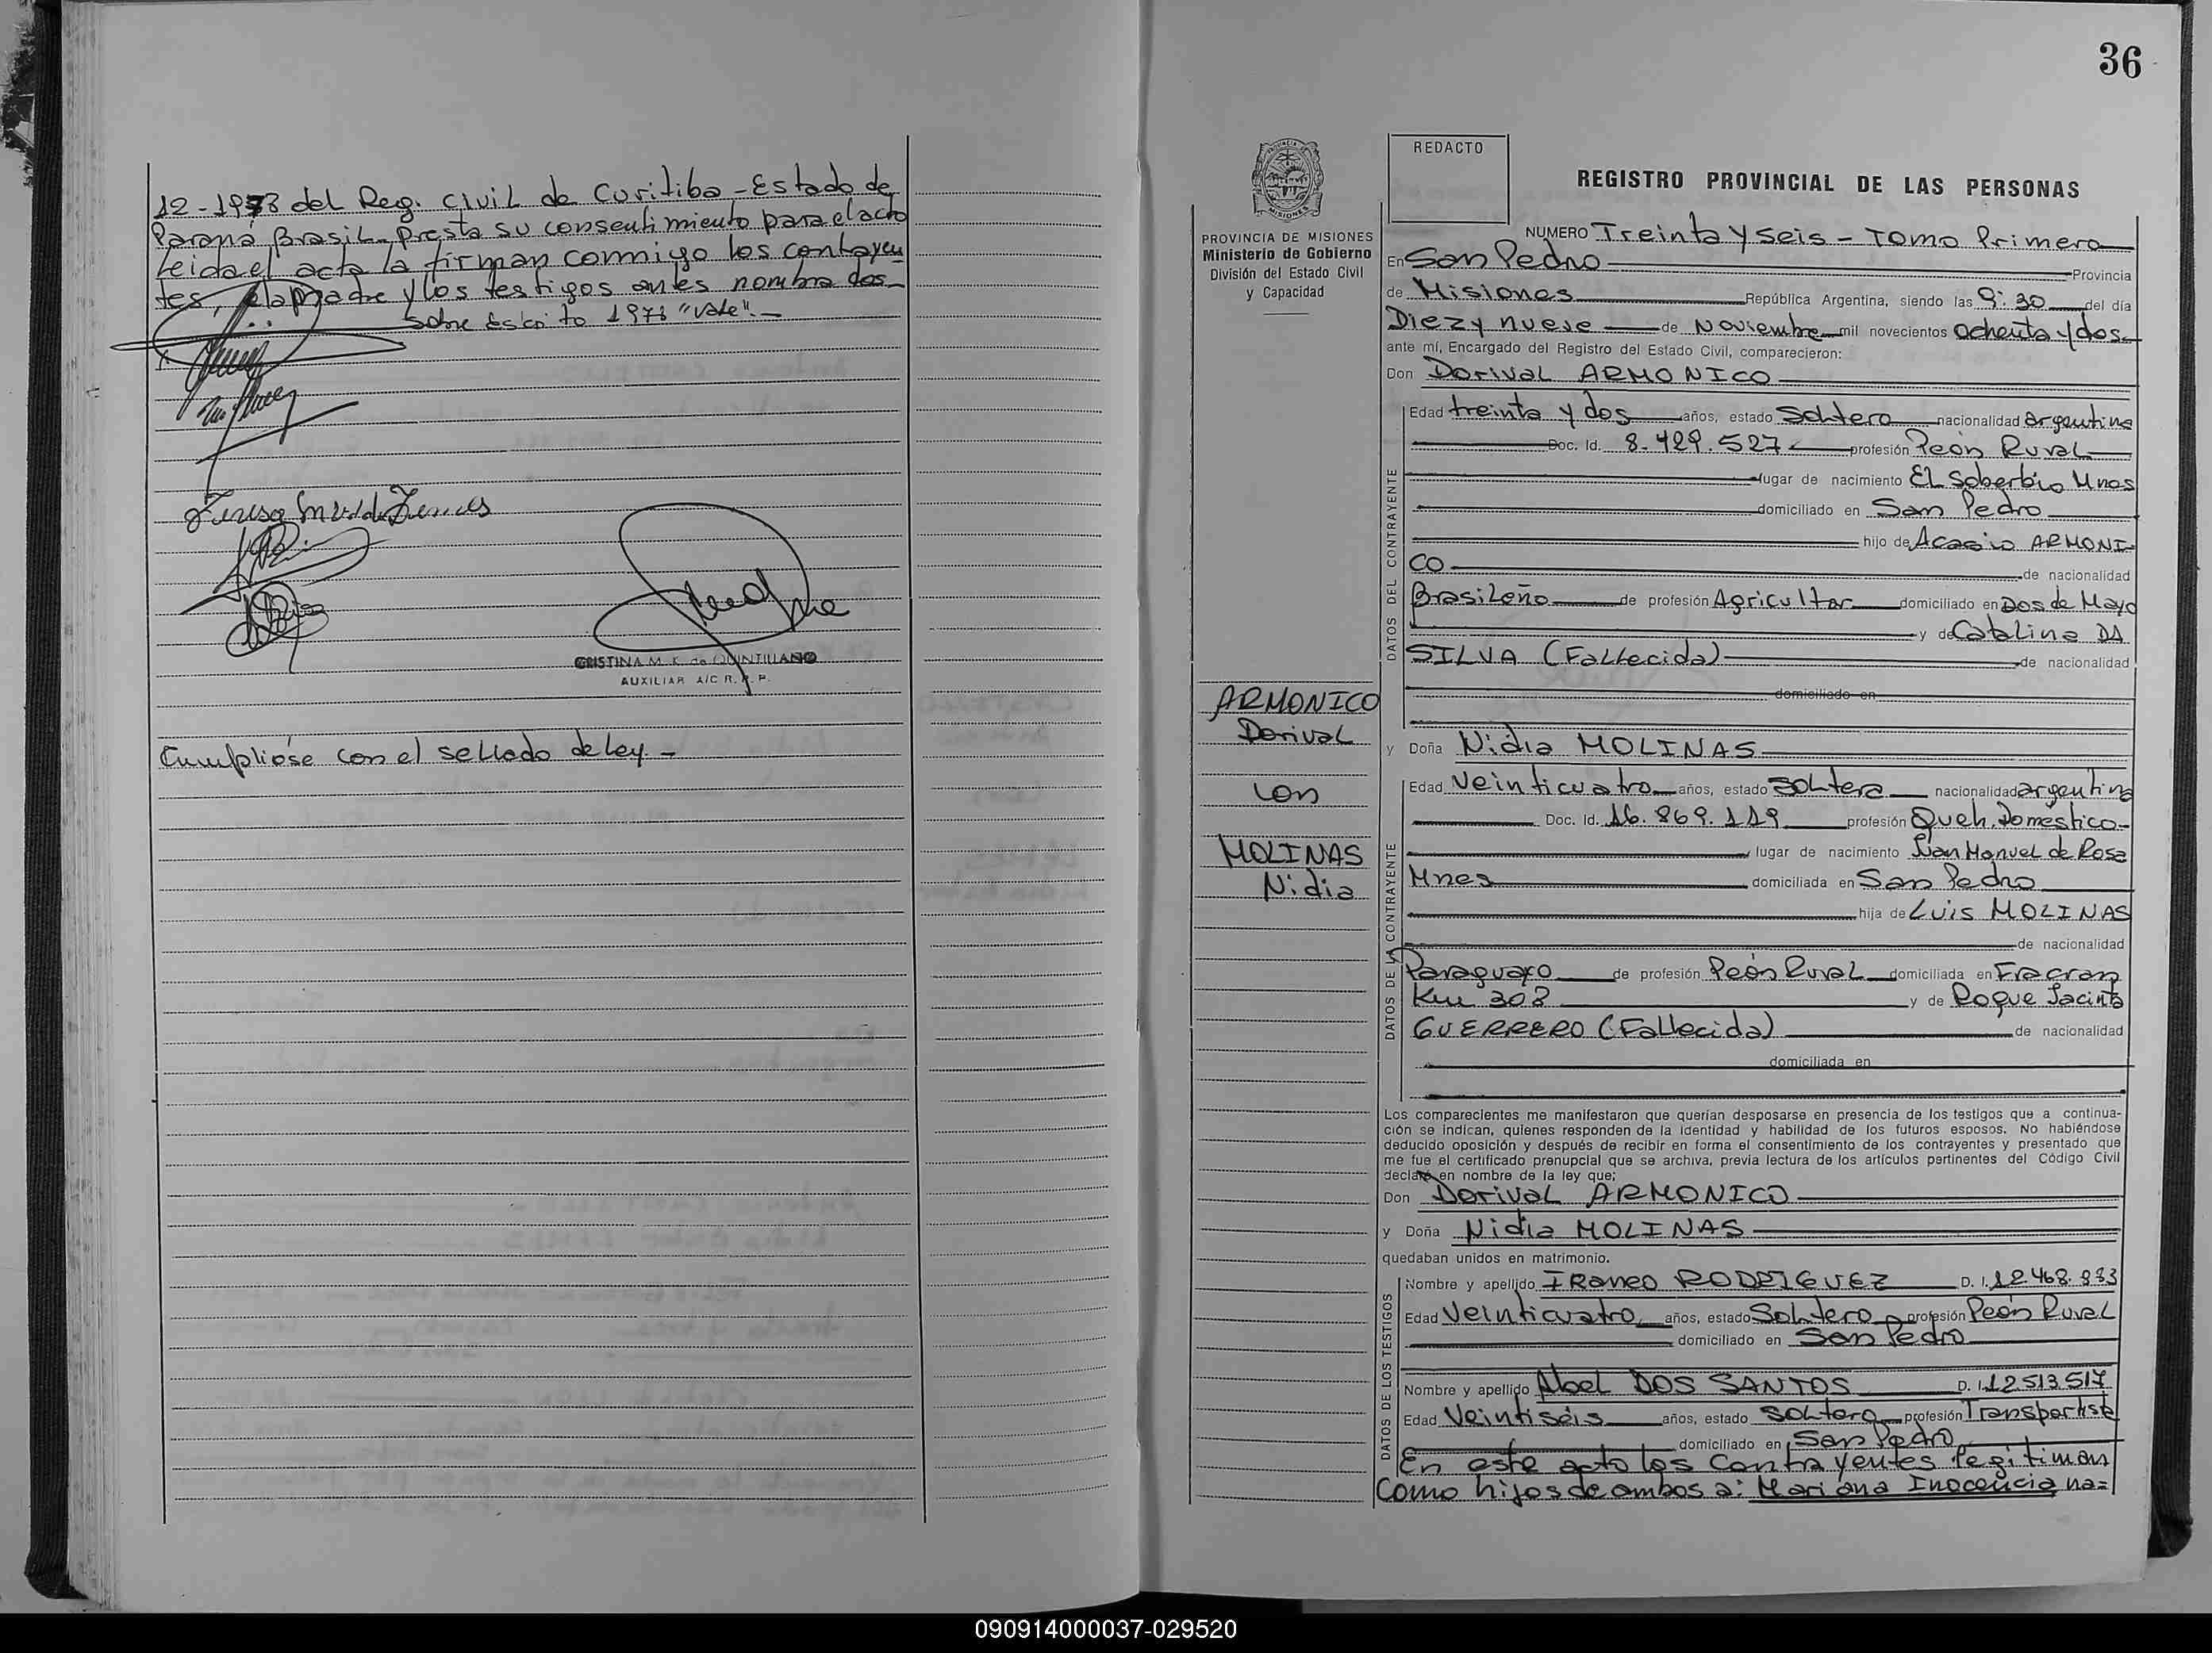 12-1973 del Reg. Civil de Curitiba - Estado de
Paraná Brasil. Presta su consentimiento para el acto
Leida el acta la firman conmigo los contrayen
tes, la madre y los testigos antes nombrados -
Sobre Escrito 1973 "vale". -
CRISTINA M. K. de QUINTILIANO
AUXILIAR A/C R. P. P.
Cumplióse con el sellado de Ley. -
36
REDACTO
REGISTRO PROVINCIAL DE LAS PERSONAS
PROVINCIA DE MISIONES
Ministerio de Gobierno
División del Estado Civil
y Capacidad
NUMERO Treinta y seis - Tomo Primero
En San Pedro Provincia
de Misiones República Argentina, siendo las 9:30 del día
Diez y nueve de Noviembre mil novecientos ochenta y dos
ante mí, Encargado del Registro del Estado Civil, comparecieron:
Don Dorival ARMONICO
DATOS DEL CONTRAYENTE
Edad treinta y dos años, estado Soltero nacionalidad argentina
Doc. Id. 8.429.527 profesión Peón Rural
lugar de nacimiento El Soberbio Mnes
domiciliado en San Pedro
hijo de Acasio ARMONI
CO de nacionalidad
Brasileño de profesión Agricultor domiciliado en Dos de Mayo
y de Catalina DA
SILVA (Fallecida) de nacionalidad
domiciliado en
ARMONICO
Dorival
con
MOLINAS
Nidia
y Doña Nidia MOLINAS
DATOS DE LA CONTRAYENTE
Edad Veinticuatro años, estado Soltera nacionalidad argentina
Doc. Id. 16.869.119 profesión Queh. Domestico
lugar de nacimiento Juan Manuel de Rosa
Mnes domiciliada en San Pedro
hija de Luis MOLINAS
de nacionalidad
Paraguayo de profesión Peón Rural domiciliada en Fracran
Km 308 y de Roque Jacinta
GUERRERO (Fallecida) de nacionalidad
domiciliada en
Los comparecientes me manifestaron que querían desposarse en presencia de los testigos que a continua-
ción se indican, quienes responden de la identidad y habilidad de los futuros esposos. No habiéndose
deducido oposición y después de recibir en forma el consentimiento de los contrayentes y presentado que
me fue el certificado prenupcial que se archiva, previa lectura de los artículos pertinentes del Código Civil
declaré en nombre de la ley que;
Don Dorival ARMONICO
y Doña Nidia MOLINAS
quedaban unidos en matrimonio.
DATOS DE LOS TESTIGOS
Nombre y apellido IRANEO RODRIGUEZ D. I. 12.468.833
Edad Veinticuatro años, estado Soltero profesión Peón Rural
domiciliado en San Pedro
Nombre y apellido Abel DOS SANTOS D. I. 12.513.517
Edad Veintiséis años, estado Soltero profesión Transportista
domiciliado en San Pedro
En este acto los Contrayentes legitiman
Como hijos de ambos a: Mariana Inocencia na=
090914000037-029520